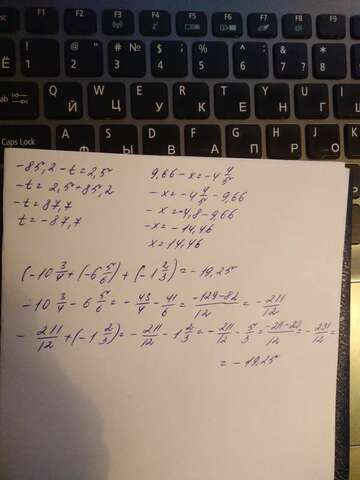 F1 F2 F3 F4 F5 F6 F7 F8
Ё ! 1 " 2 № # 3 ; $ 4 % 5 : ^ 6 ? & 7 * 8
Й Ц У К Е Н Г
Caps Lock
-85,2-t=2,5
-t=2,5+85,2
-t=87,7
t=-87,7
9,66-x=-4 4/5
-x=-4 4/5-9,66
-x=-4,8-9,66
-x=-14,46
x=14,46
(-10 3/4+(-6 5/6)+(-1 2/3)=-19,25
-10 3/4-6 5/6=-43/4-41/6=-129-82/12=-211/12
-211/12+(-1 2/3)=-211/12-1 2/3=-211/12-5/3=-211-20/12=-231/12=
=-19,25